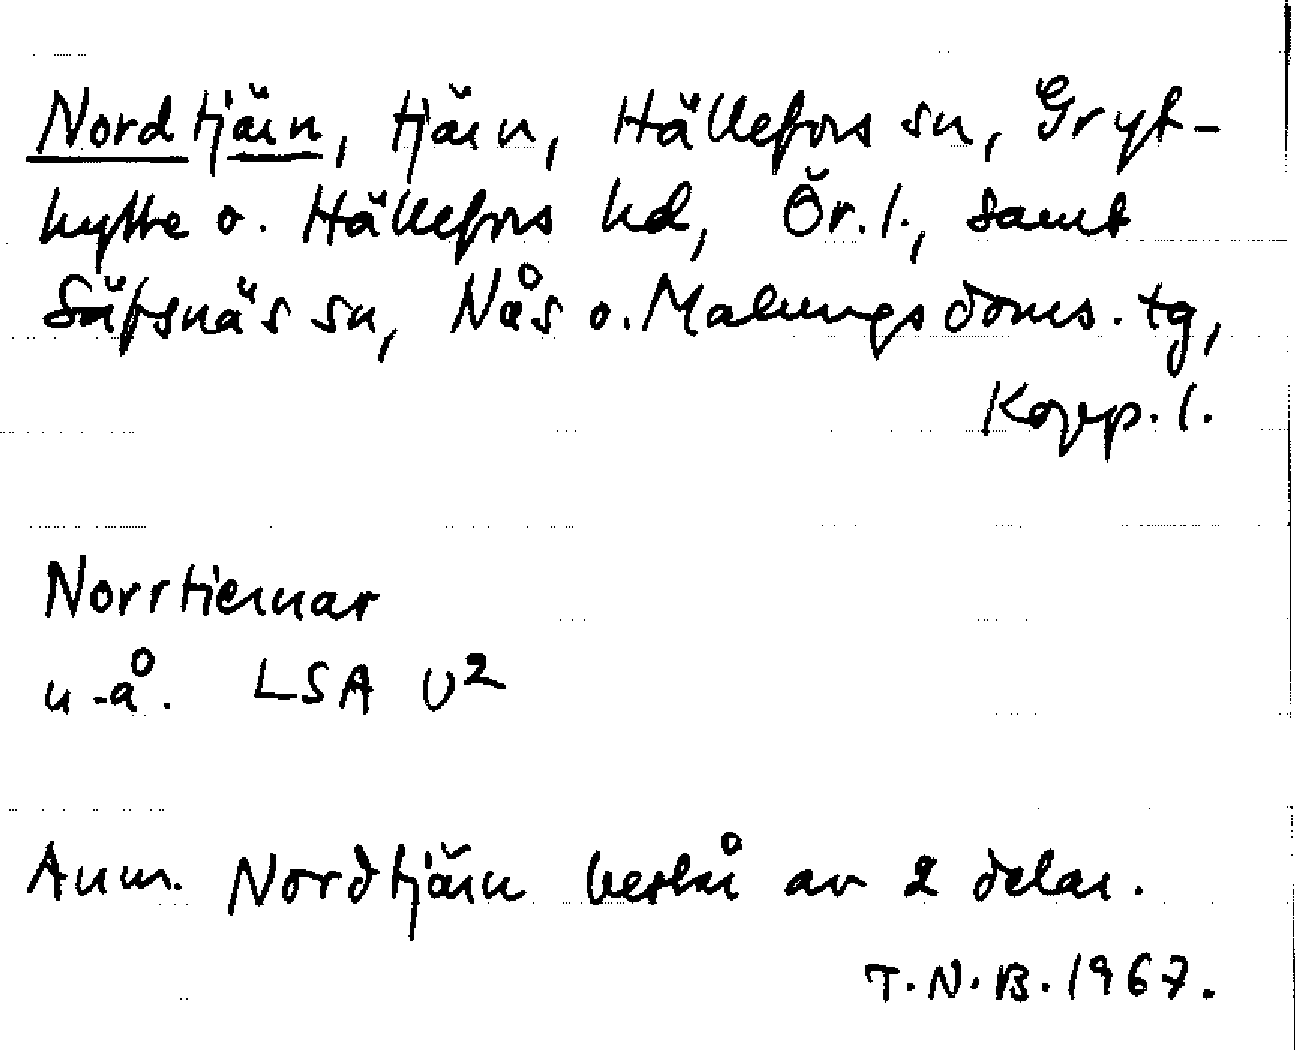 Nordtjärn, tjärn, Hällefors sn, Gryt-
hytte o. Hällefors hd, Ör. l., samt
Säfsnäs sn, Nås o. Malungs doms. tg,
Kopp. l.
Norrtiernar
u-å. LSA U²
Anm. Nordtjärn består av 2 delar.
T.N.B. 1967.